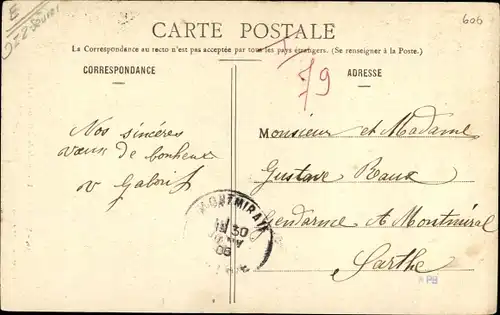 606
CARTE POSTALE
La Correspondance au recto n'est pas acceptée par tous les pays étrangers. (Se renseigner à la Poste.)
CORRESPONDANCE
ADRESSE
79
Nos sincères
vœux de bonheur
Monsieur et Madame
Gustave
Gendarme A Montmiral
Sarthe
MONTMIRAIL
30
06
APB